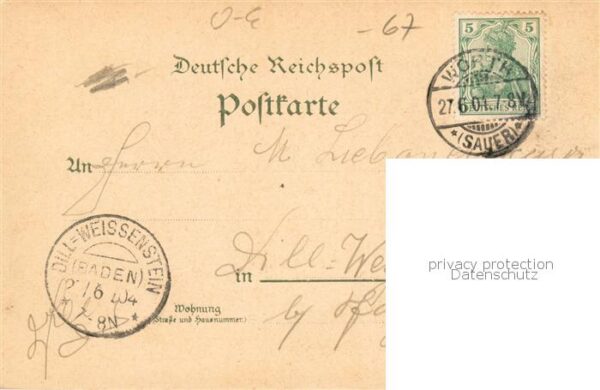 O-E
-67
5 5
Deutsche Reichspost
Postkarte
WÖRTH
27.6.04.7-8V.
*(SAUER)*
An Herrn M
DILL=WEISSENSTEIN
(BADEN)
6 04
8N
in Dill-We
Wohnung
(Straße und Hausnummer)
privacy protection
Datenschutz